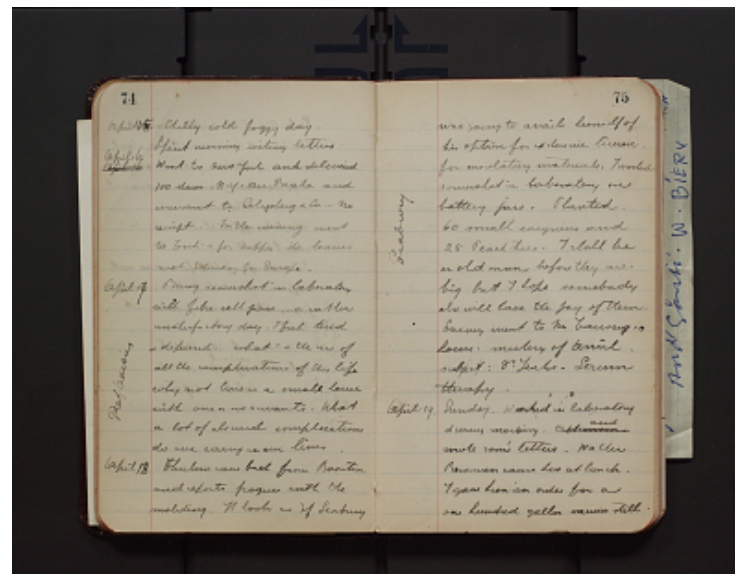 74
Chilly cold foggy day.
Spent morning writing letters
April 16
Went to New York and delivered
100 down
and
warrant to & Co - No
receipt. In the evening went
to for supper he leaves
not for Europe.
April 17 Doing somewhat in laboratory
with a rather
unsatisfactory day. I feel tired
& depressed. What is the use of
all the complications of this life
why not live in a small house
with one or no servants. What
a lot of absurd complications
do we carry in our lives.
April 18 Thurlow came back from Boonton
and reports progress with the
molding. It looks as if Seabury
75
was going to avail himself of
his option for exclusive license
for insulating materials. I worked
somewhat in laboratory on
battery jars. Planted
60 small evergreens and
28 Peach trees. I shall be
an old man before they are
big but I hope somebody
else will have the joy of them.
Evening went to
house: meeting of
subject: Dr
therapy.
Seabury
April 19. Sunday. Worked in laboratory
during morning. and
wrote some letters. Walter
came here at lunch.
I gave him an order for a
one hundred gallon
W. BIERY